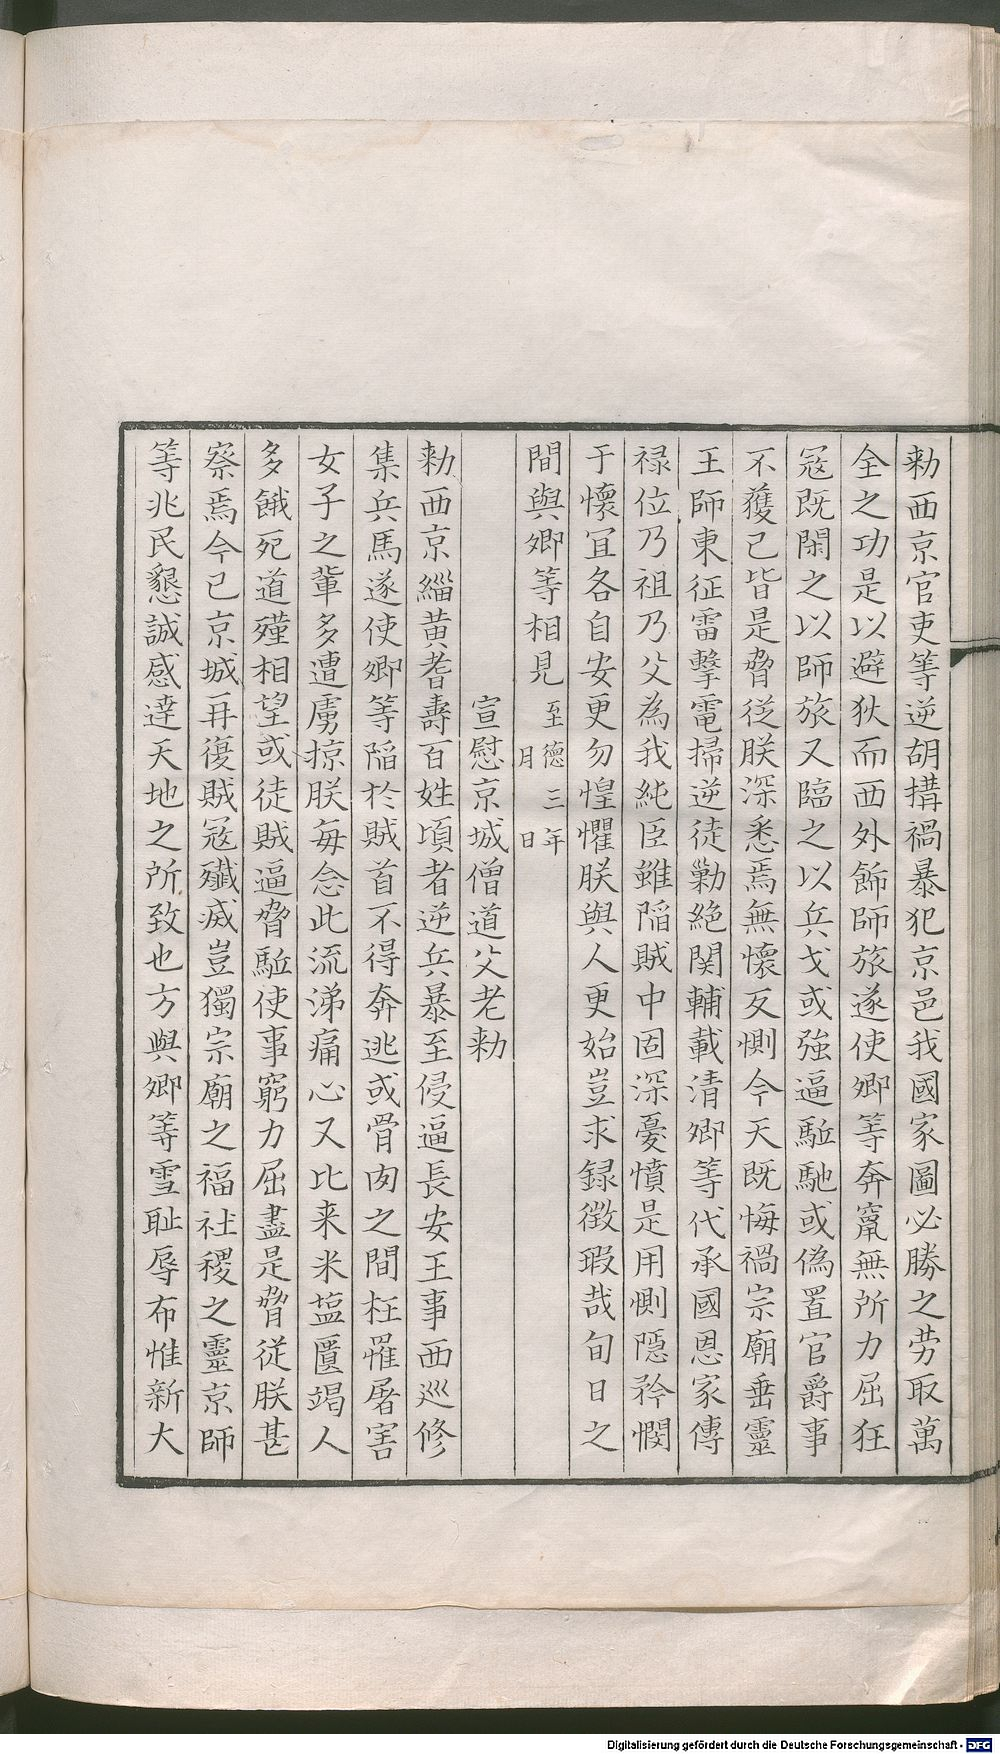 勑西京官吏等逆胡搆禍暴犯京邑我國家圖必勝之勞取萬
全之功是以避狄而西外飾師旅遂使卿等奔竄無所力屈狂
冦既閑之以師旅又臨之以兵戈或強逼駈馳或偽置官爵事
不獲已皆是脅従朕深悉焉無懷反惻今天既悔禍宗廟垂靈
王師東征雷擊電掃逆徒勦絶関輔載清卿等代承國恩家傳
禄位乃祖乃父為我純臣雖䧟賊中固深憂憤是用惻隠矜憫
于懷宜各自安更勿惶懼朕與人更始豈求録徴瑕哉旬日之
間與卿等相見至德三年月日
宣慰京城僧道父老勑
勑西京緇黄耆壽百姓頃者逆兵暴至侵逼長安王事西巡修
集兵馬遂使卿等䧟於賊首不得奔逃或骨肉之間枉罹屠害
女子之輩多遭虜掠朕每念此流涕痛心又比来米塩匱竭人
多餓死道殣相望或徒賊逼脅駈使事窮力屈盡是脅従朕甚
察焉今已京城再復賊冦殲滅豈獨宗廟之福社稷之靈京師
等兆民懇誠感逹天地之所致也方與卿等雪耻辱布惟新大
Digitalisierung gefördert durch die Deutsche Forschungsgemeinschaft - DFG